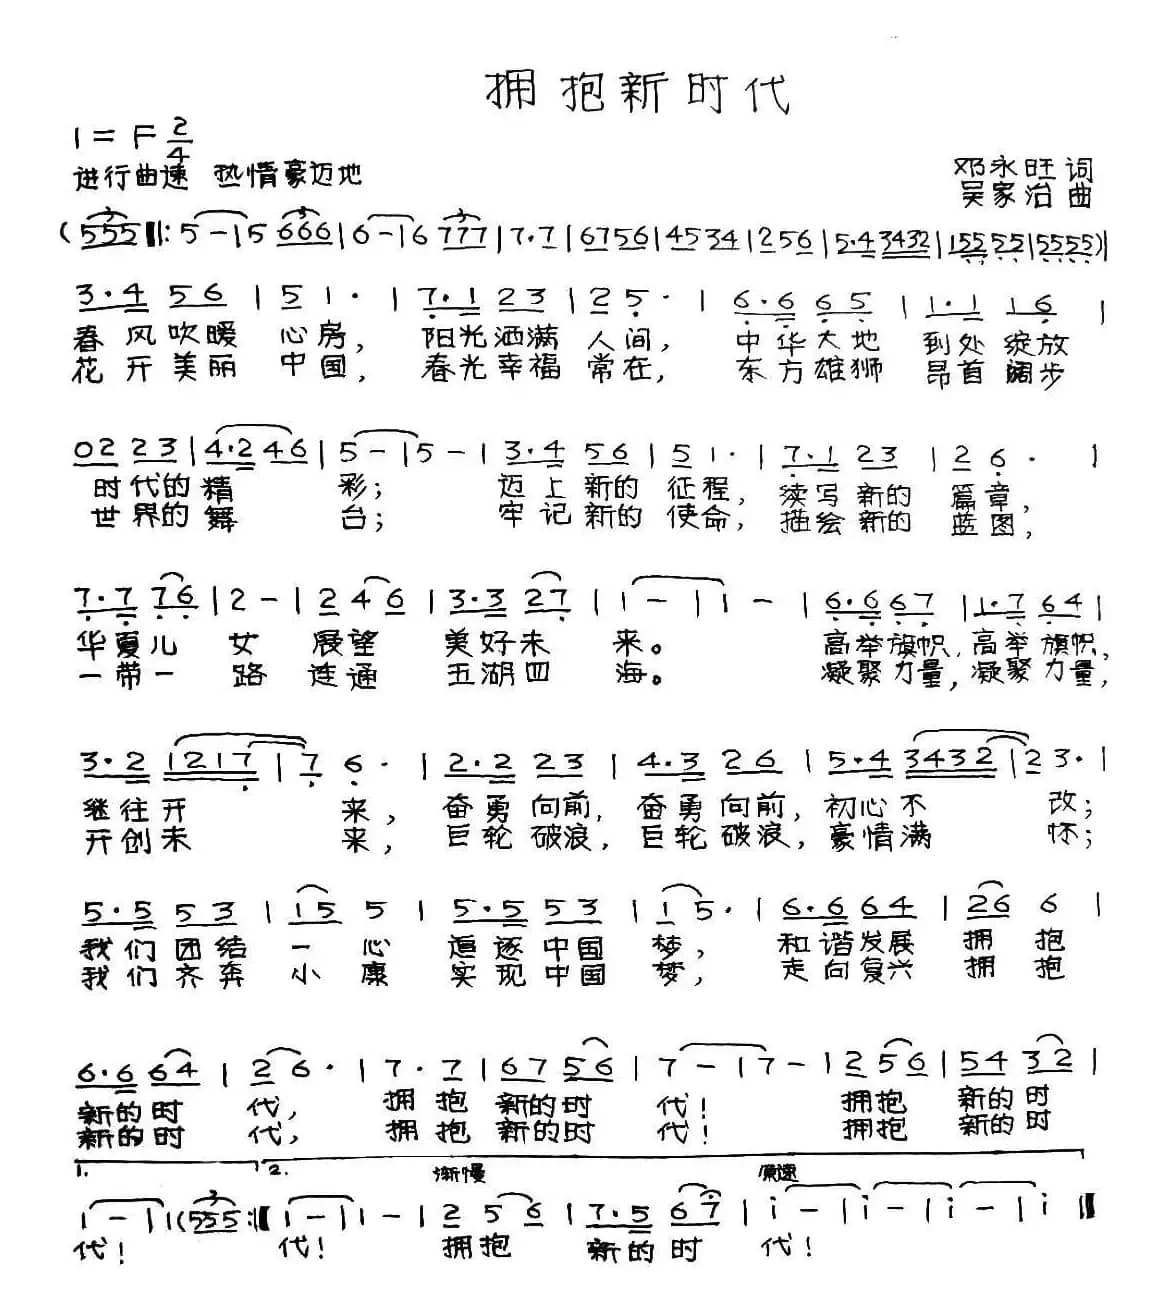 拥抱新时代
1=F 2/4
进行曲速 热情豪迈地
邓永旺 词
吴家治 曲
(555 ‖: 5 – | 5 666 | 6 – | 6 777 | 7·7 | 6756 | 4534 | 256 | 5·4 3432 | 155 55 | 5555) |
3·4 56 | 5 1· | 7·1 23 | 2 5· | 6·6 65 | 1·1 16 |
春风吹暖 心房, 阳光洒满 人间, 中华大地 到处绽放
花开美丽 中国, 春光幸福 常在, 东方雄狮 昂首阔步
02 23 | 4·2 46 | 5 – | 5 – | 3·4 56 | 5 1· | 7·1 23 | 2 6· |
时代的精 彩; 迈上新的 征程, 续写新的 篇章,
世界的舞 台; 牢记新的 使命, 描绘新的 蓝图,
7·7 76 | 2 – | 2 4 6 | 3·3 27 | 1 – | 1 – | 6·6 67 | 1·7 64 |
华夏儿 女 展望 美好未 来。 高举旗帜, 高举旗帜,
一带一 路 连通 五湖四 海。 凝聚力量, 凝聚力量,
3·2 1217 | 7 6· | 2·2 23 | 4·3 26 | 5·4 3432 | 2 3· |
继往开 来, 奋勇向前, 奋勇向前, 初心不 改;
开创未 来, 巨轮破浪, 巨轮破浪, 豪情满 怀;
5·5 53 | 15 5 | 5·5 53 | 1 5· | 6·6 64 | 26 6 |
我们团结 一 心 追逐中国 梦, 和谐发展 拥 抱
我们齐奔 小 康 实现中国 梦, 走向复兴 拥 抱
6·6 64 | 2 6· | 7·7 | 67 56 | 7 – | 7 – | 2 5 6 | 54 32 |
新的时 代, 拥 抱 新的时 代! 拥抱 新的时
新的时 代, 拥 抱 新的时 代! 拥抱 新的时
1. 2. 渐慢 原速
1 – | 1 (555 :‖ 1 – | 1 – | 2 5 6 | 7·5 67 | i – | i – | i – | i ‖
代! 代! 拥抱 新的时 代!